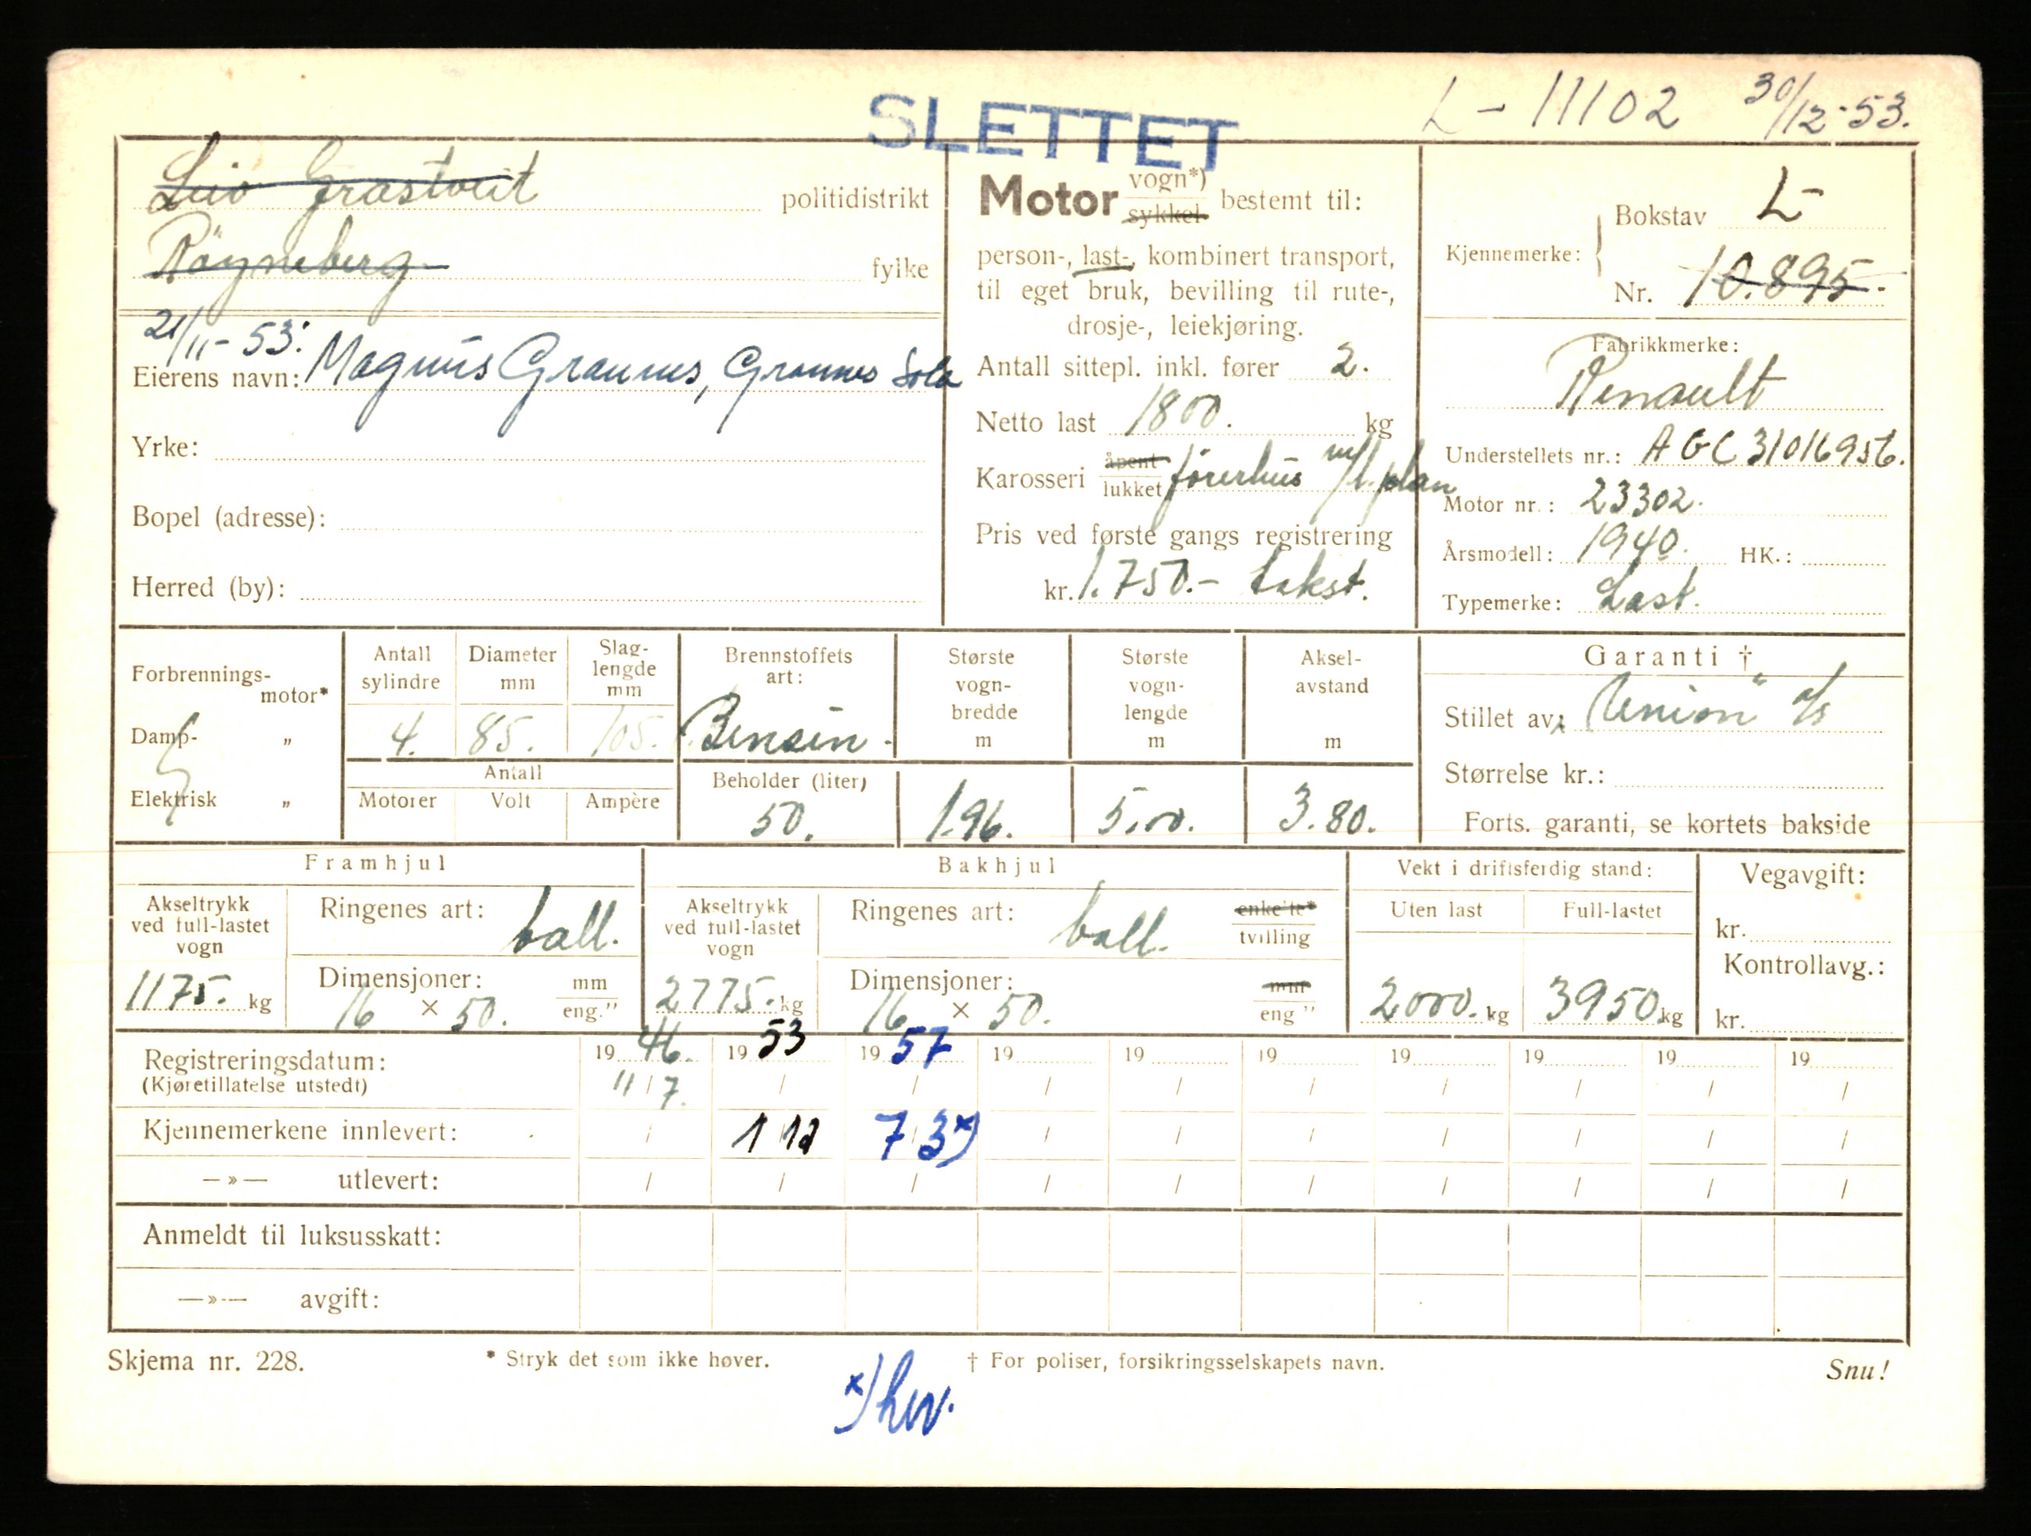 L - 11102 30/12-53.
SLETTET
Leiv Grastveit politidistrikt
Røyneberg fylke
21/11-53:
Eierens navn: Magnus Grannes, Grannes Sola
Yrke:
Bopel (adresse):
Herred (by):
Motor vogn*) sykkel bestemt til:
person-, last-, kombinert transport,
til eget bruk, bevilling til rute-,
drosje-, leiekjøring.
Antall sittepl. inkl. fører 2.
Netto last 1800. kg
Karosseri åpent lukket førerhus m/l.plan
Pris ved første gangs registrering
kr. 1.750.- takst.
Kjennemerke: Bokstav L-
Nr. 10.895.
Fabrikkmerke:
Renault
Understellets nr.: AGC31016956.
Motor nr.: 23302.
Årsmodell: 1940. HK.:
Typemerke: Last.
Forbrennings-motor*
Damp- „
Elektrisk „
Antall sylindre 4.
Diameter mm 85.
Slag-lengde mm 105.
Antall
Motorer Volt Ampère
Brennstoffets art: Bensin.
Beholder (liter) 50.
Største vogn-bredde m 1.96.
Største vogn-lengde m 5.00.
Aksel-avstand m 3.80.
Garanti †
Stillet av: "Union" a/s
Størrelse kr.:
Forts. garanti, se kortets bakside
Framhjul
Akseltrykk ved full-lastet vogn 1175. kg
Ringenes art: ball.
Dimensjoner: 16 × 50. mm eng."
Bakhjul
Akseltrykk ved full-lastet vogn 2775. kg
Ringenes art: ball. enkelte* tvilling
Dimensjoner: 16 × 50. mm eng "
Vekt i driftsferdig stand:
Uten last Full-lastet
2000. kg 3950 kg
Vegavgift:
kr.
Kontrollavg.:
kr.
Registreringsdatum: 19 46. 19 53 19 57 19 19 19 19 19 19 19
(Kjøretillatelse utstedt) 11/7. / / / / / / / / /
Kjennemerkene innlevert: / 1/12 7/3 x) / / / / / / /
—»— utlevert: / / / / / / / / / /
Anmeldt til luksusskatt:
—»— avgift:
Skjema nr. 228. * Stryk det som ikke høver. † For poliser, forsikringsselskapets navn. Snu!
x)